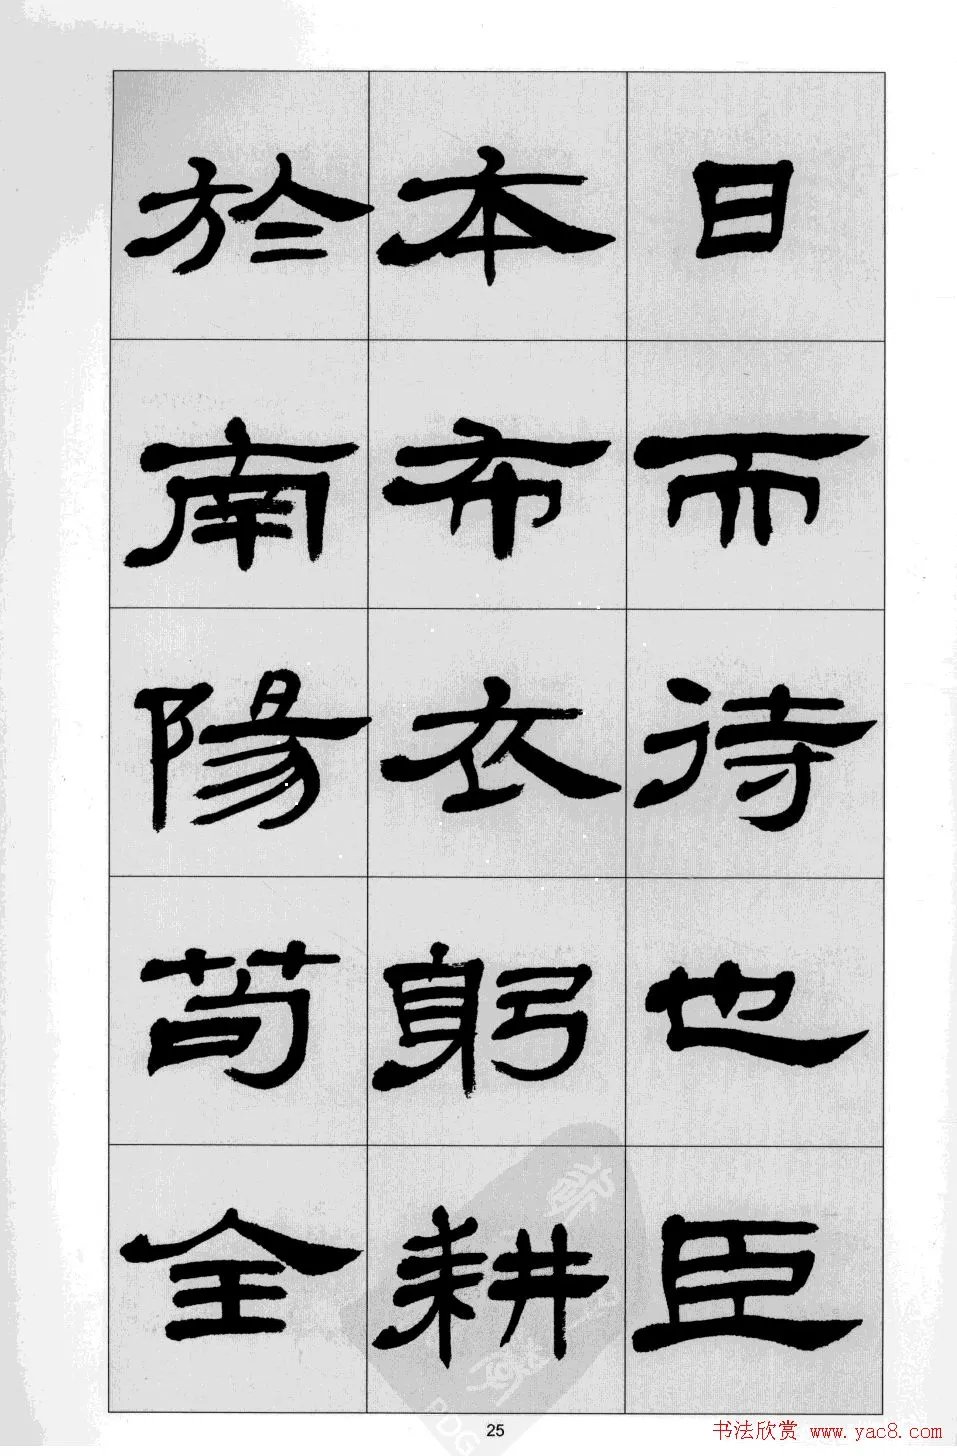 日而待也臣
本布衣躬耕
於南陽苟全
25
书法欣赏 www.yac8.com